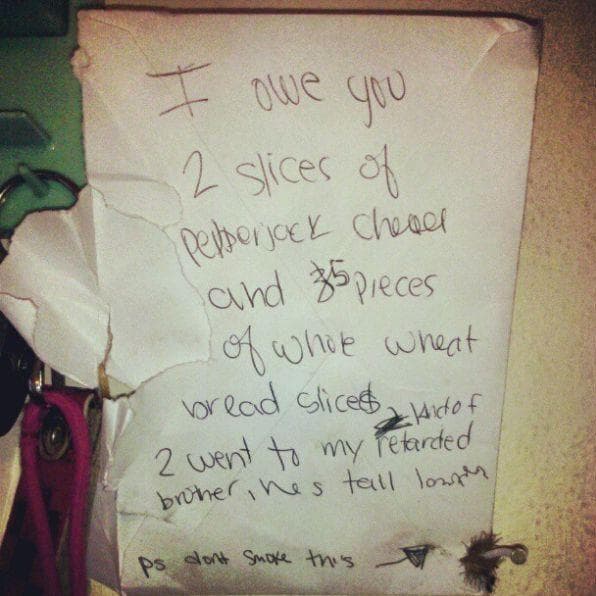 I owe you
2 slices of
pepperjack cheese
and 5 pieces
of whole wheat
bread slices
kind of
2 went to my retarded
brother, he's
ps dont smoke this